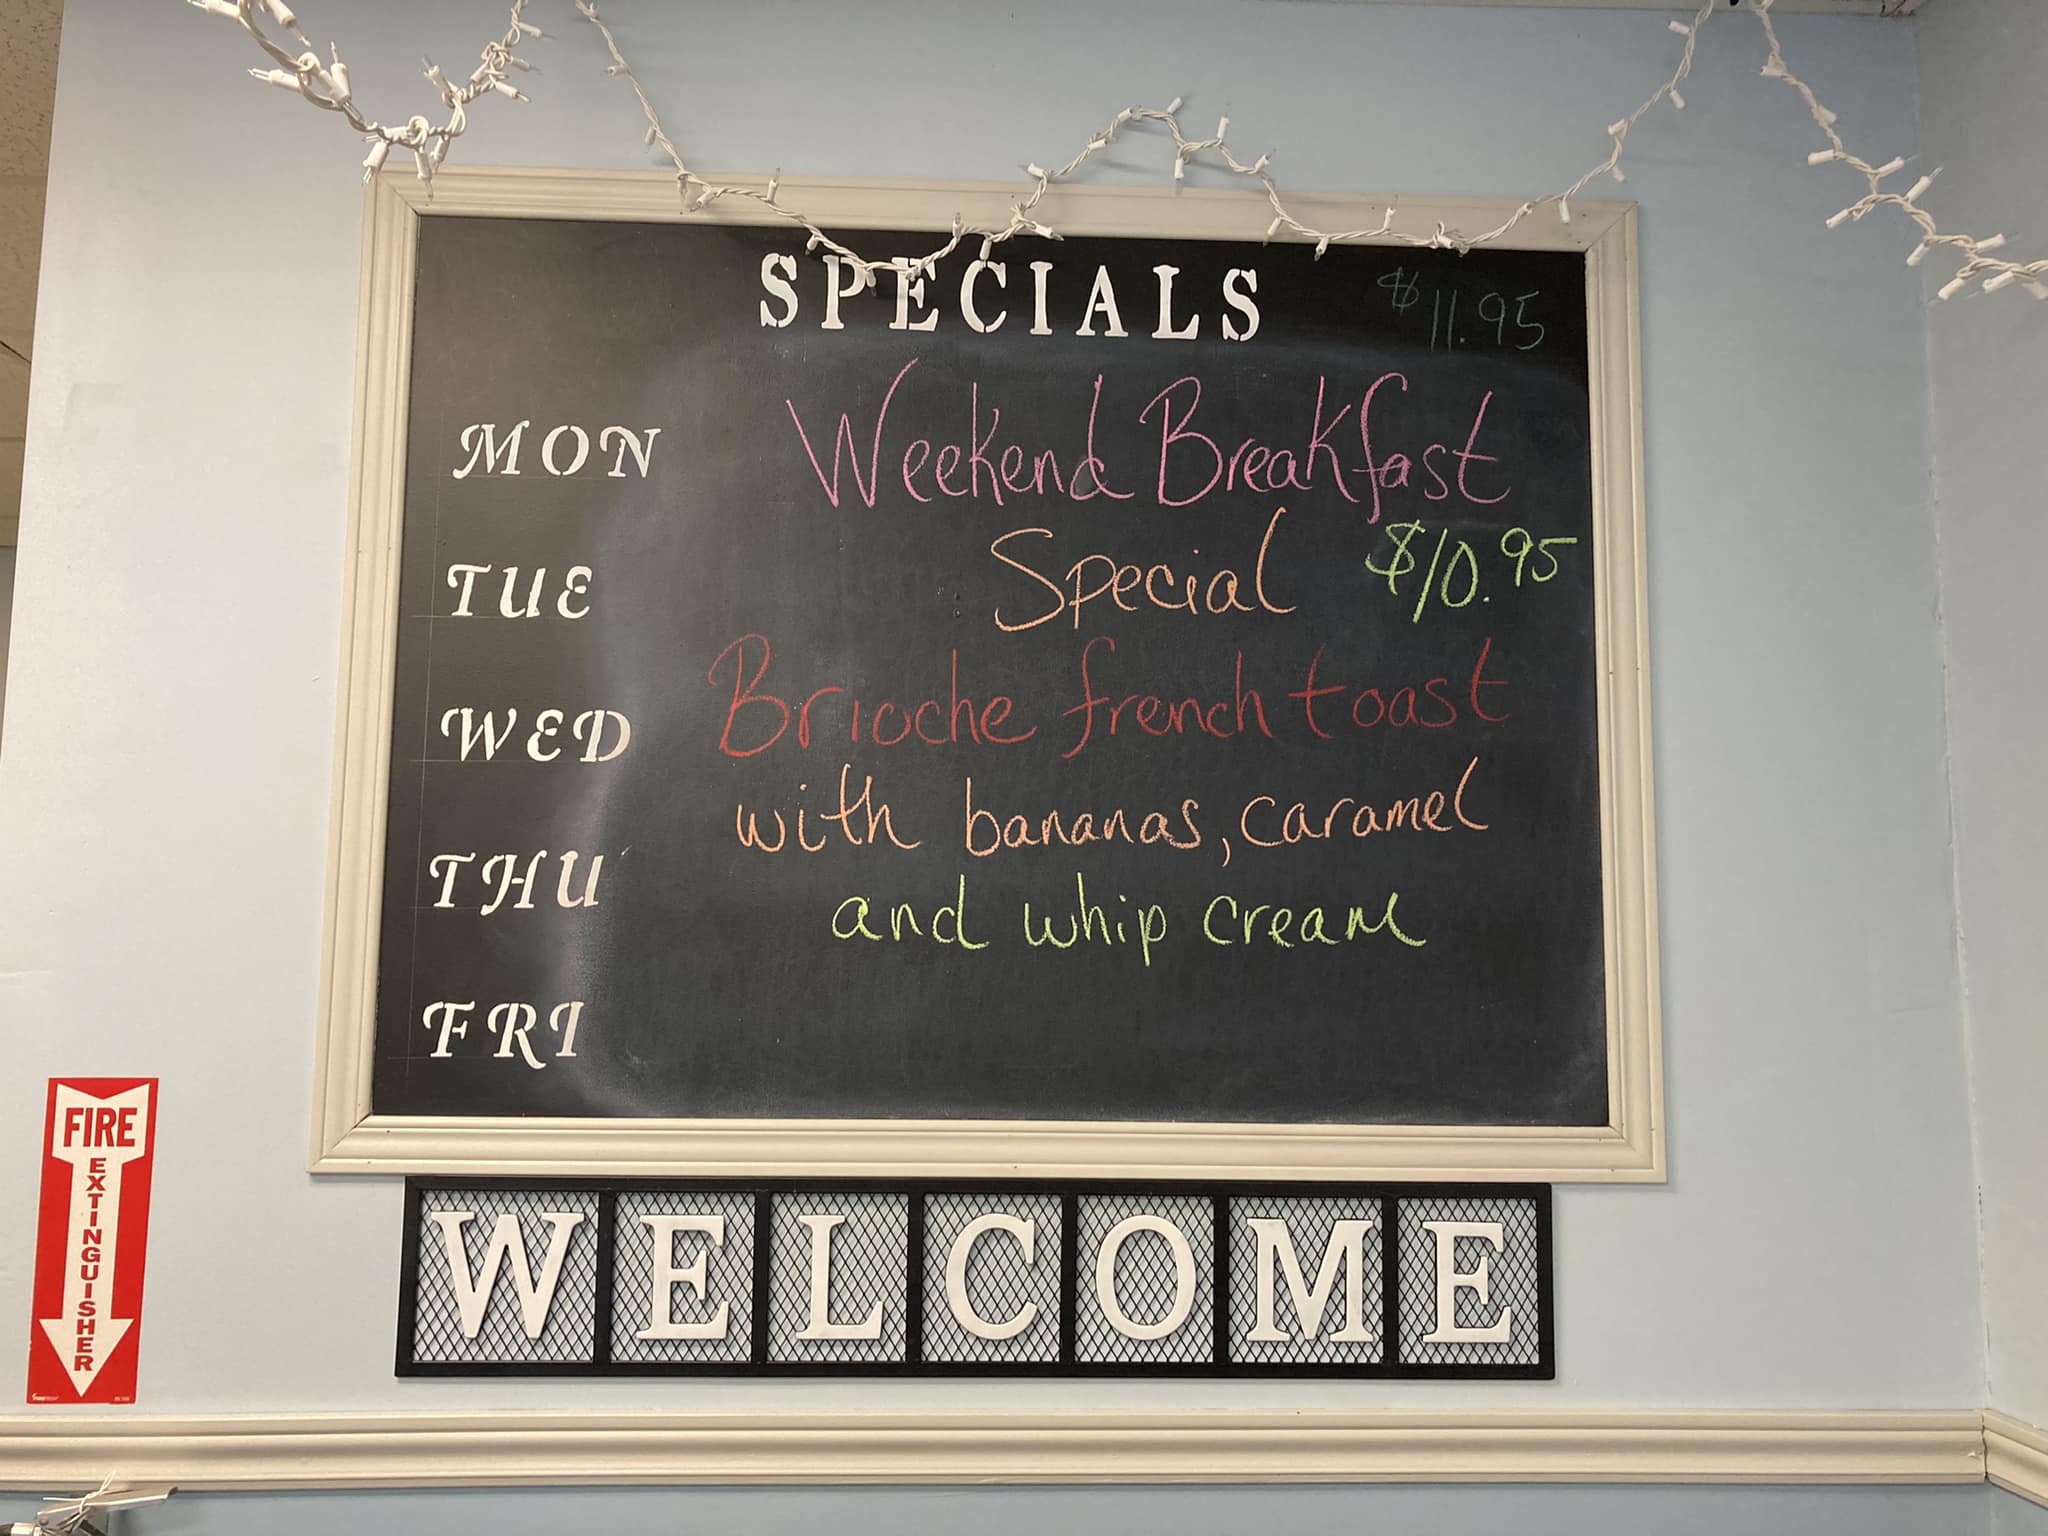 SPECIALS $11.95
MON
TUE
WED
THU
FRI
Weekend Breakfast
Special $10.95
Brioche french toast
with bananas, caramel
and whip cream
WELCOME
FIRE
EXTINGUISHER